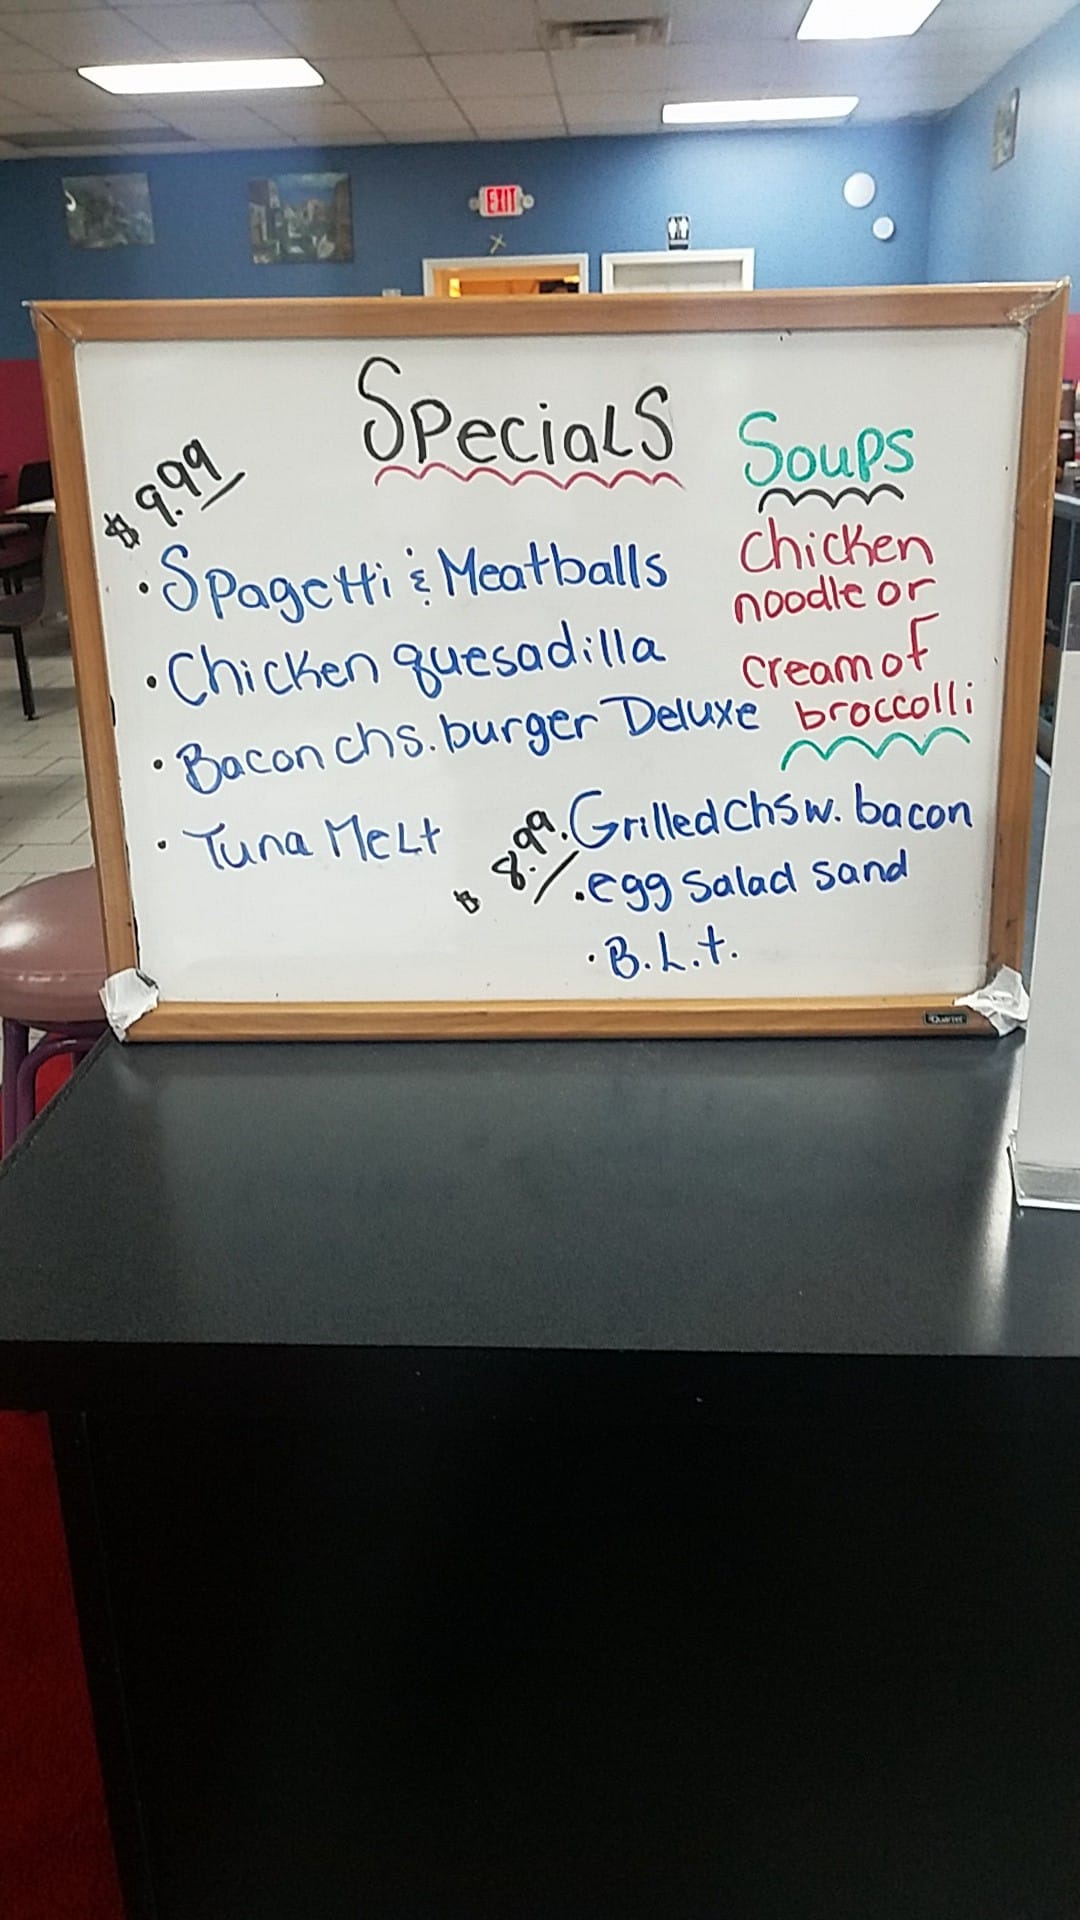 EXIT
Specials
$9.99
• Spagetti & Meatballs
• Chicken quesadilla
• Bacon chs. burger Deluxe
• Tuna Melt
Soups
Chicken
noodle or
cream of
broccolli
$8.99
• Grilled chs w. bacon
• egg salad sand
• B.L.t.
Quartet